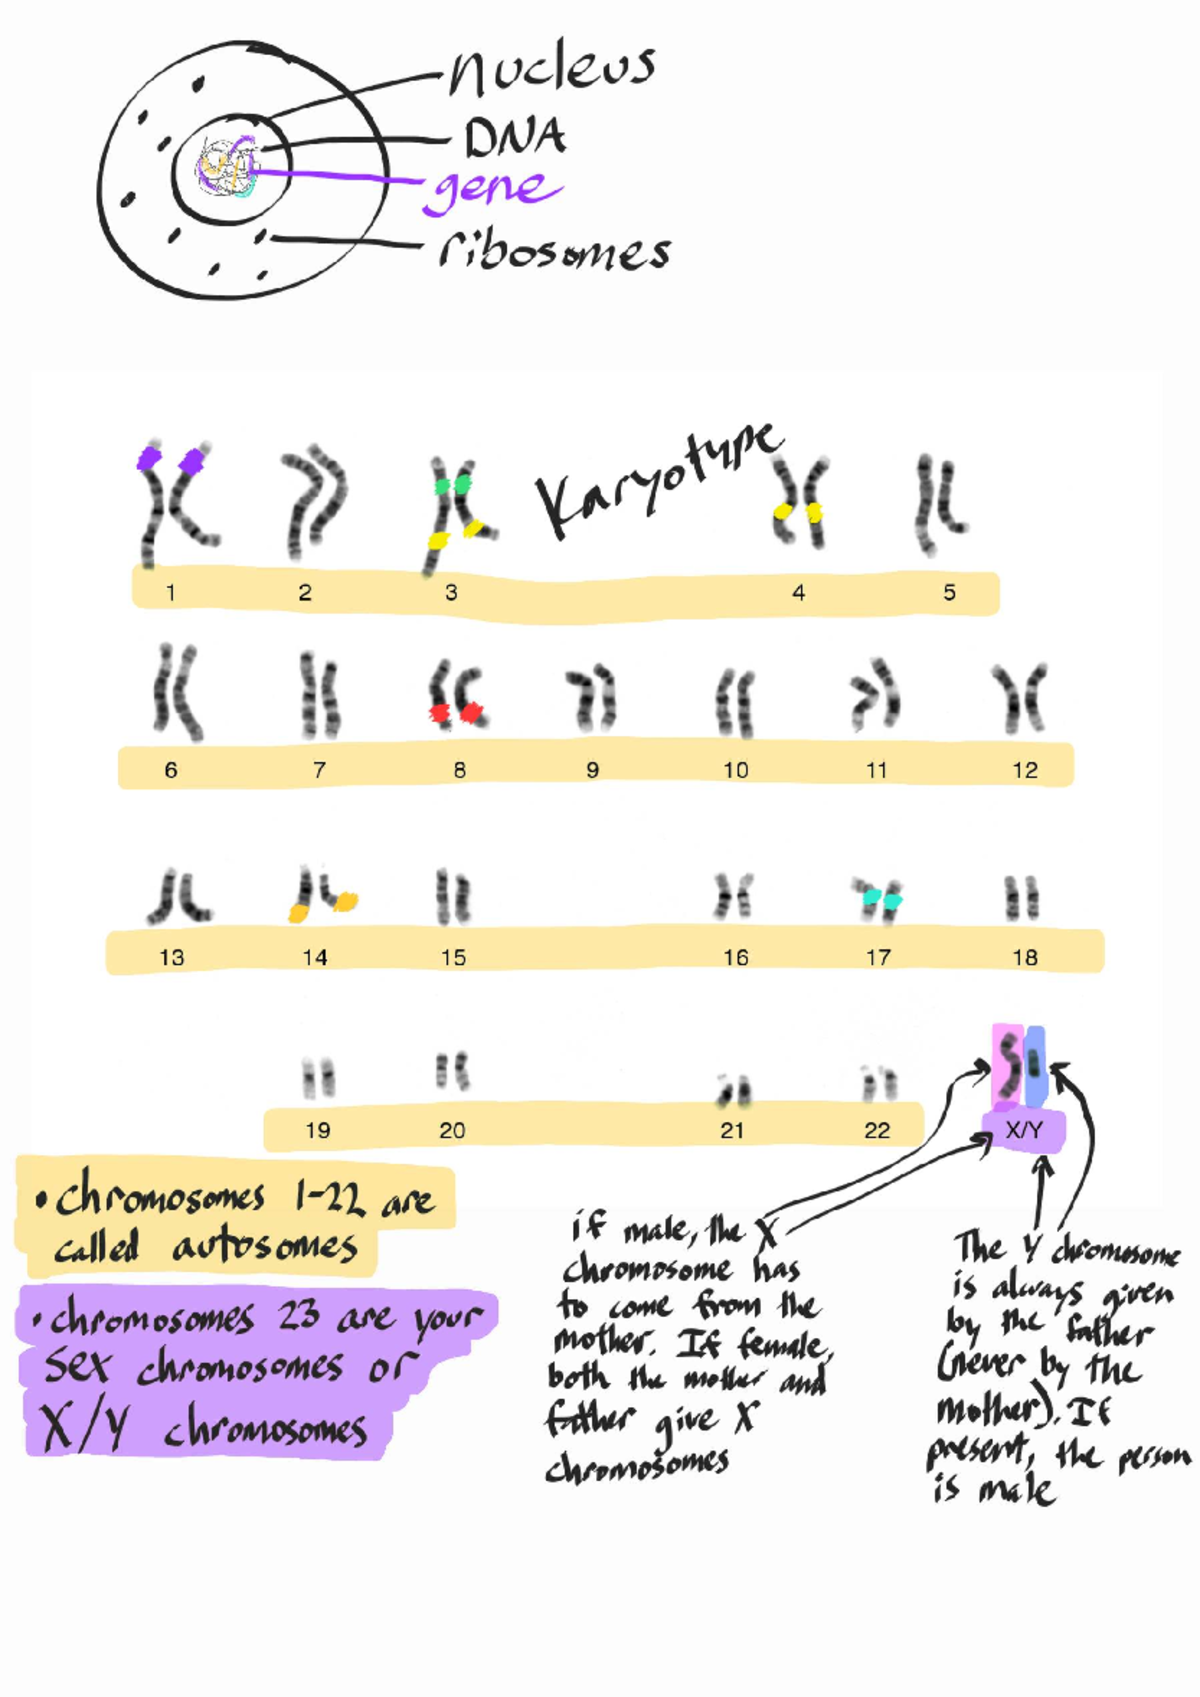 nucleus
DNA
gene
ribosomes
Karyotype
1 2 3 4 5
6 7 8 9 10 11 12
13 14 15 16 17 18
19 20 21 22 X/Y
• chromosomes 1-22 are
called autosomes
• chromosomes 23 are your
sex chromosomes or
X/Y chromosomes
if male, the X
chromosome has
to come from the
mother. If female,
both the mother and
father give X
chromosomes
The Y chromosome
is always given
by the father
(never by the
mother). If
present, the person
is male